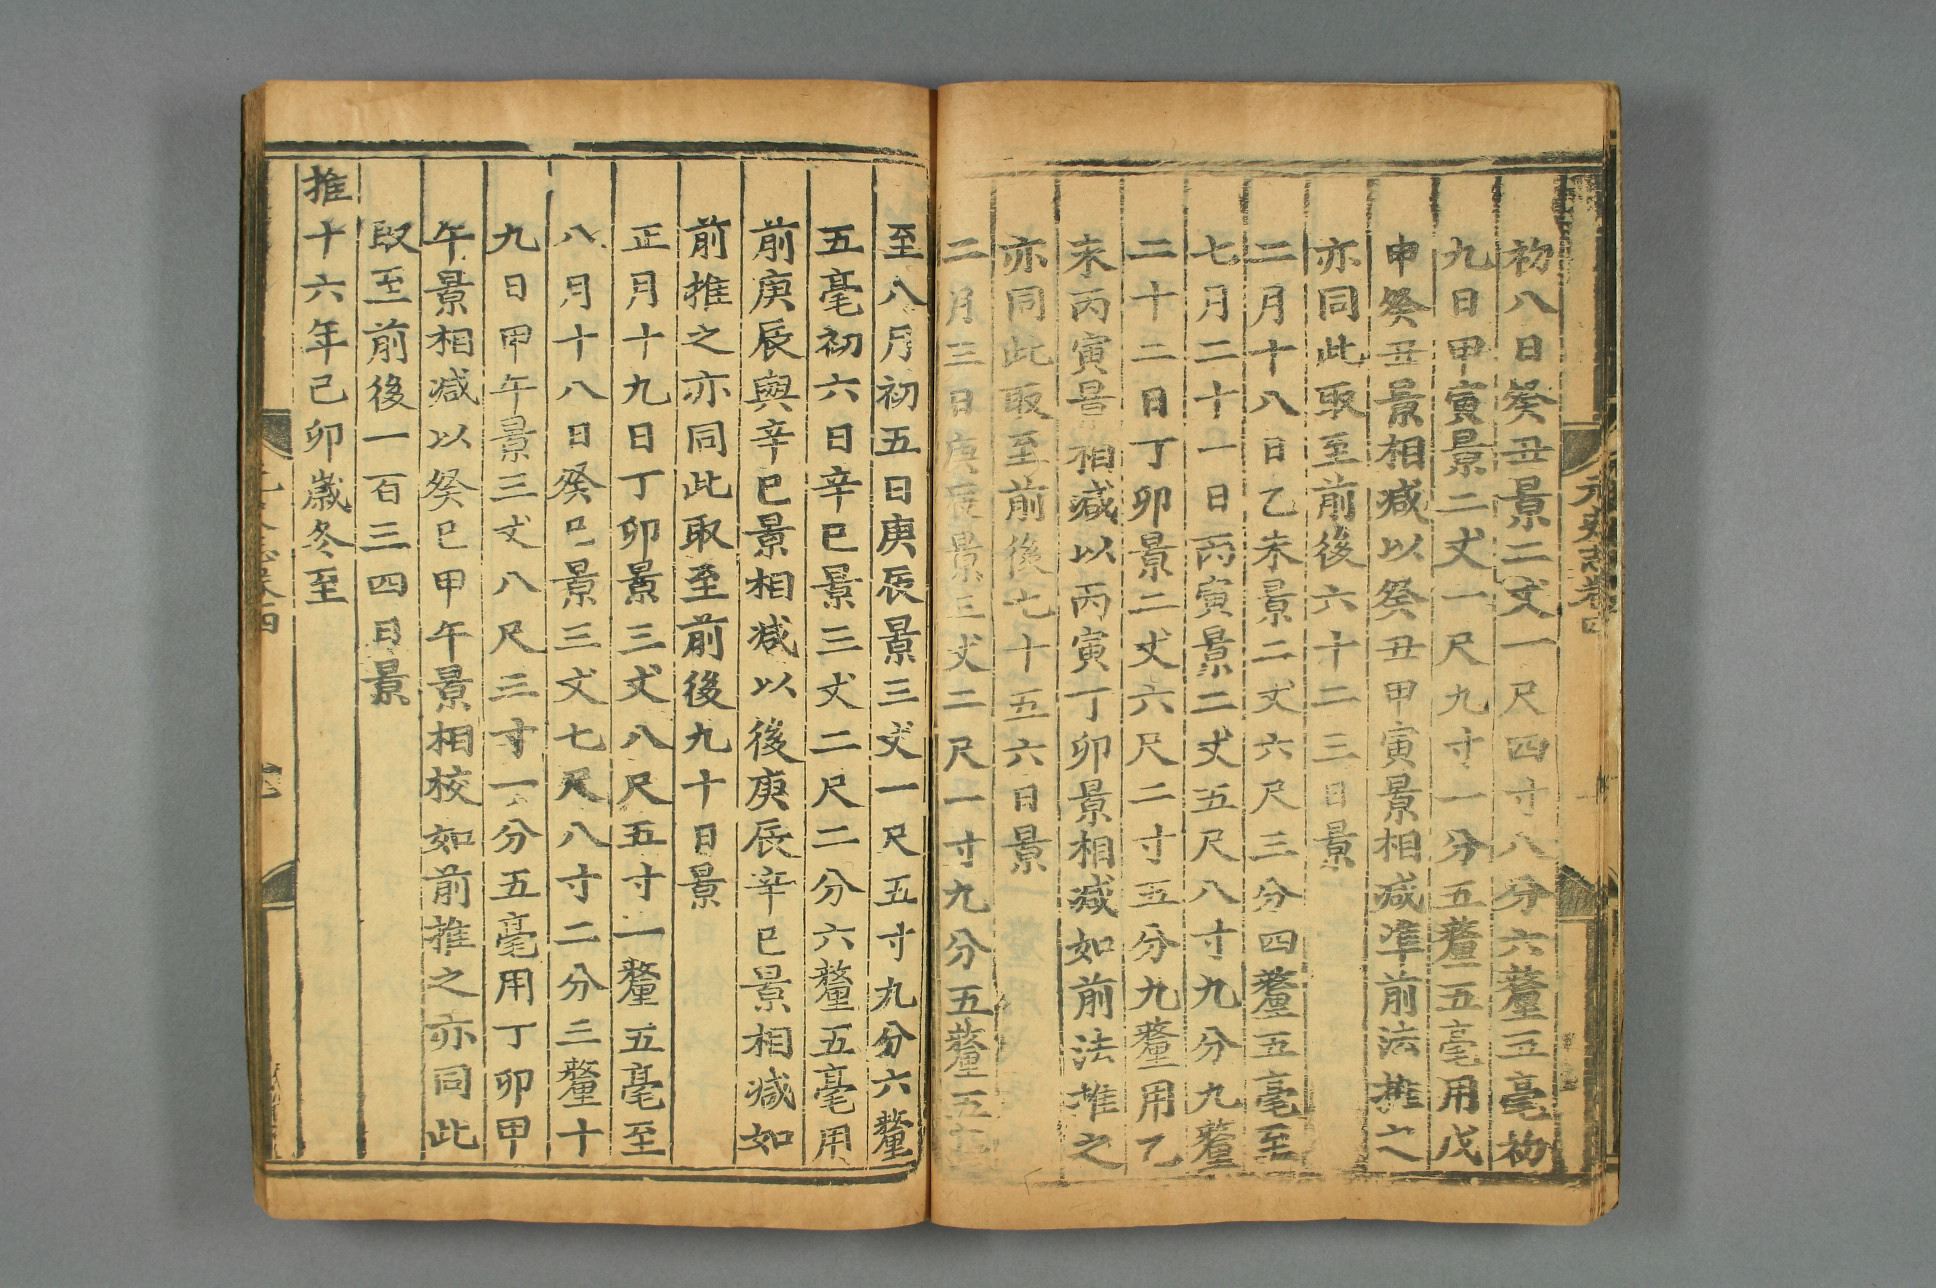 元史志卷四
初八日癸丑景二丈一尺四寸八分六釐五毫初
九日甲寅景二丈一尺九寸一分五釐五毫用戊
申癸丑景相減以癸丑甲寅景相減準前法推之
亦同此取至前後六十二三日景
二月十八日乙未景二丈六尺三分四釐五毫至
七月二十一日丙寅景二丈五尺八寸九分九釐
二十二日丁卯景二丈六尺二寸五分九釐用乙
未丙寅景相減以丙寅丁卯景相減如前法推之
亦同此取至前後七十五六日景
二月三日庚辰景三丈二尺一寸九分五釐五毫
至八月初五日庚辰景三丈一尺五寸九分六釐
五毫初六日辛巳景三丈二尺二分六釐五毫用
前庚辰與辛巳景相減以後庚辰辛巳景相減如
前推之亦同此取至前後九十日景
正月十九日丁卯景三丈八尺五寸一釐五毫至
八月十八日癸巳景三丈七尺八寸二分三釐十
九日甲午景三丈八尺三寸一分五毫用丁卯甲
午景相減以癸巳甲午景相校如前推之亦同此
取至前後一百三四日景
推十六年己卯歲冬至